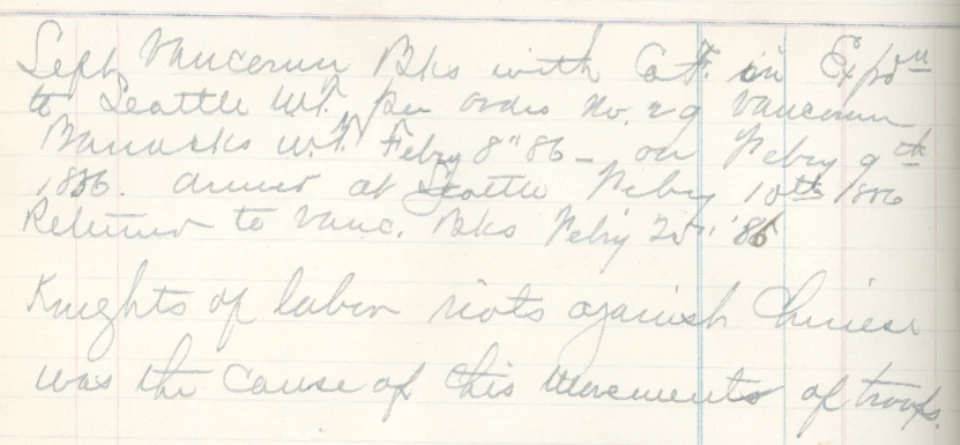 Left Vancouver Bks with Co. F. in Expdn
to Seattle W.T. per order No. 29 Vancouver
Barracks W.T. Feby 8" 86 - on Feby 9th
1886. arrived at Seattle Feby 10th 1886
Returned to Vanc. Bks Feb'y '86
Knights of labor riots against Chinese
was the cause of this movements of troops.